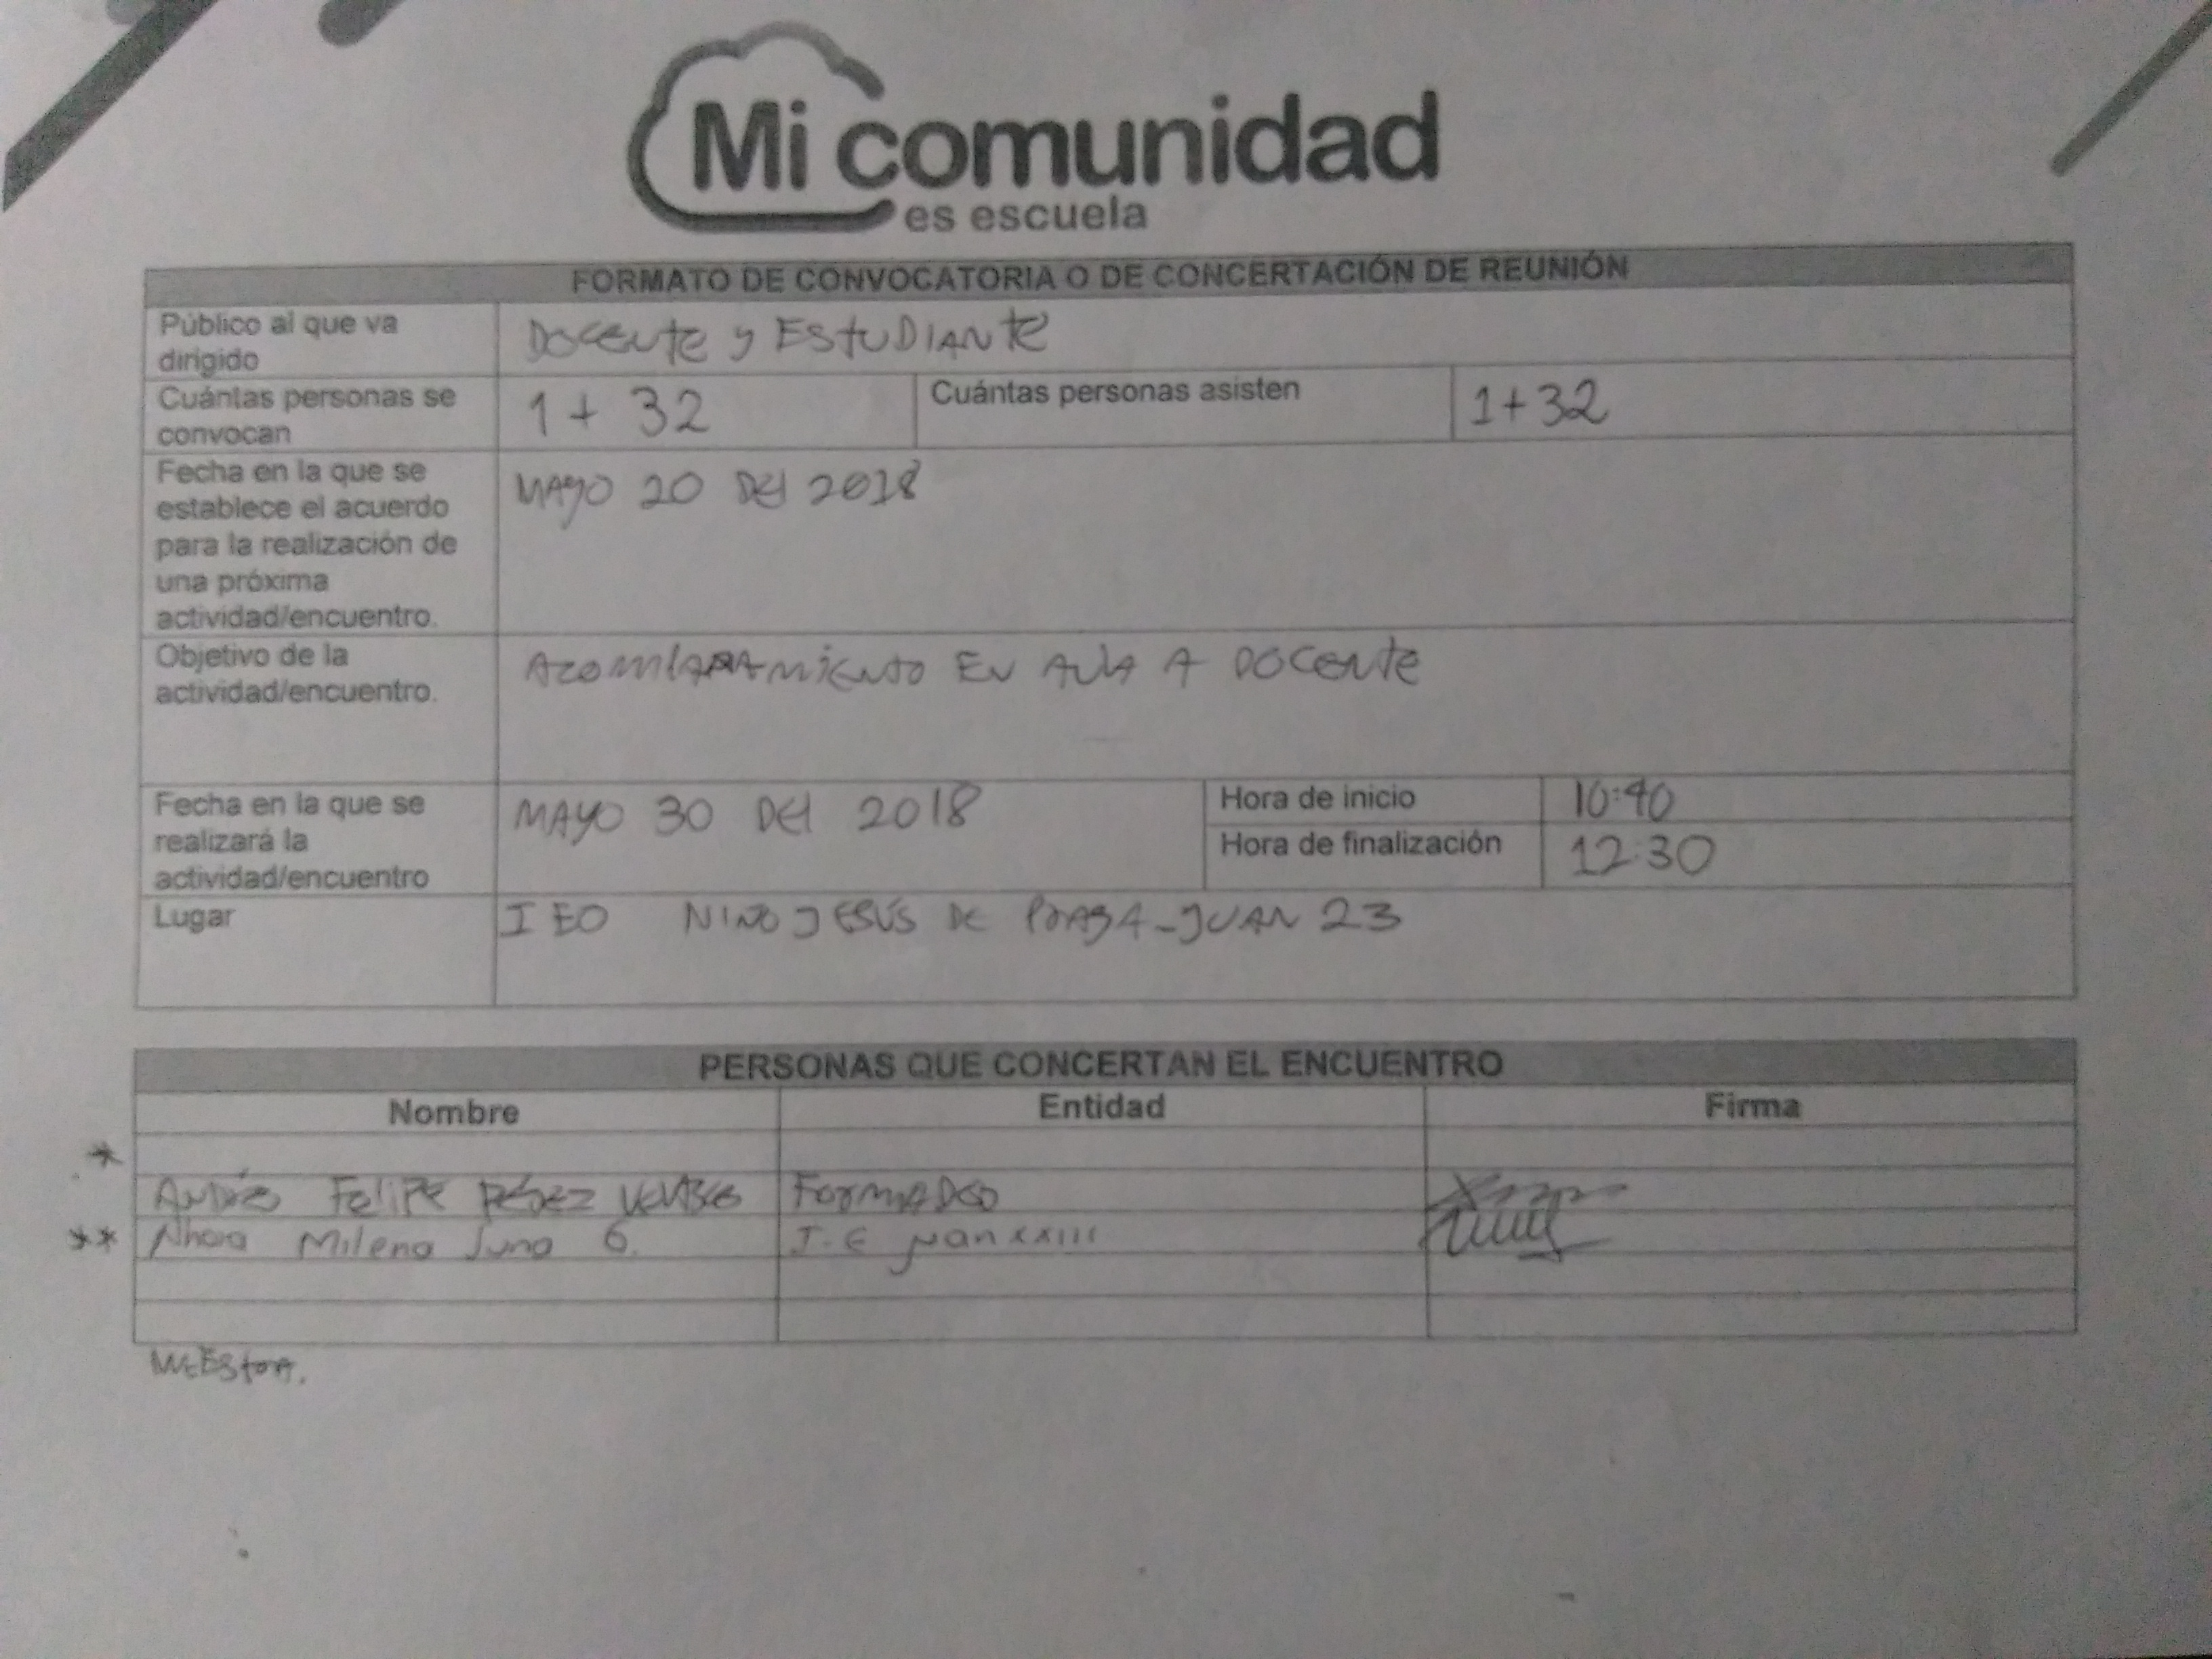 Mi comunidad
es escuela
FORMATO DE CONVOCATORIA O DE CONCERTACIÓN DE REUNIÓN
Público al que va
dirigido
DOCENTE y ESTUDIANTE
Cuántas personas se
convocan
1 + 32
Cuántas personas asisten
1+32
Fecha en la que se
establece el acuerdo
para la realización de
una próxima
actividad/encuentro.
MAYO 20 DEL 2018
Objetivo de la
actividad/encuentro.
EN AULA A DOCENTE
Fecha en la que se
realizará la
actividad/encuentro
MAYO 30 DEL 2018
Hora de inicio
10:40
Hora de finalización
12:30
Lugar
IEO NIÑO JESÚS DE PRAGA - JUAN 23
PERSONAS QUE CONCERTAN EL ENCUENTRO
Nombre
Entidad
Firma
*
Felipe Pérez
** Nhora Milena
I.E Juan XXIII